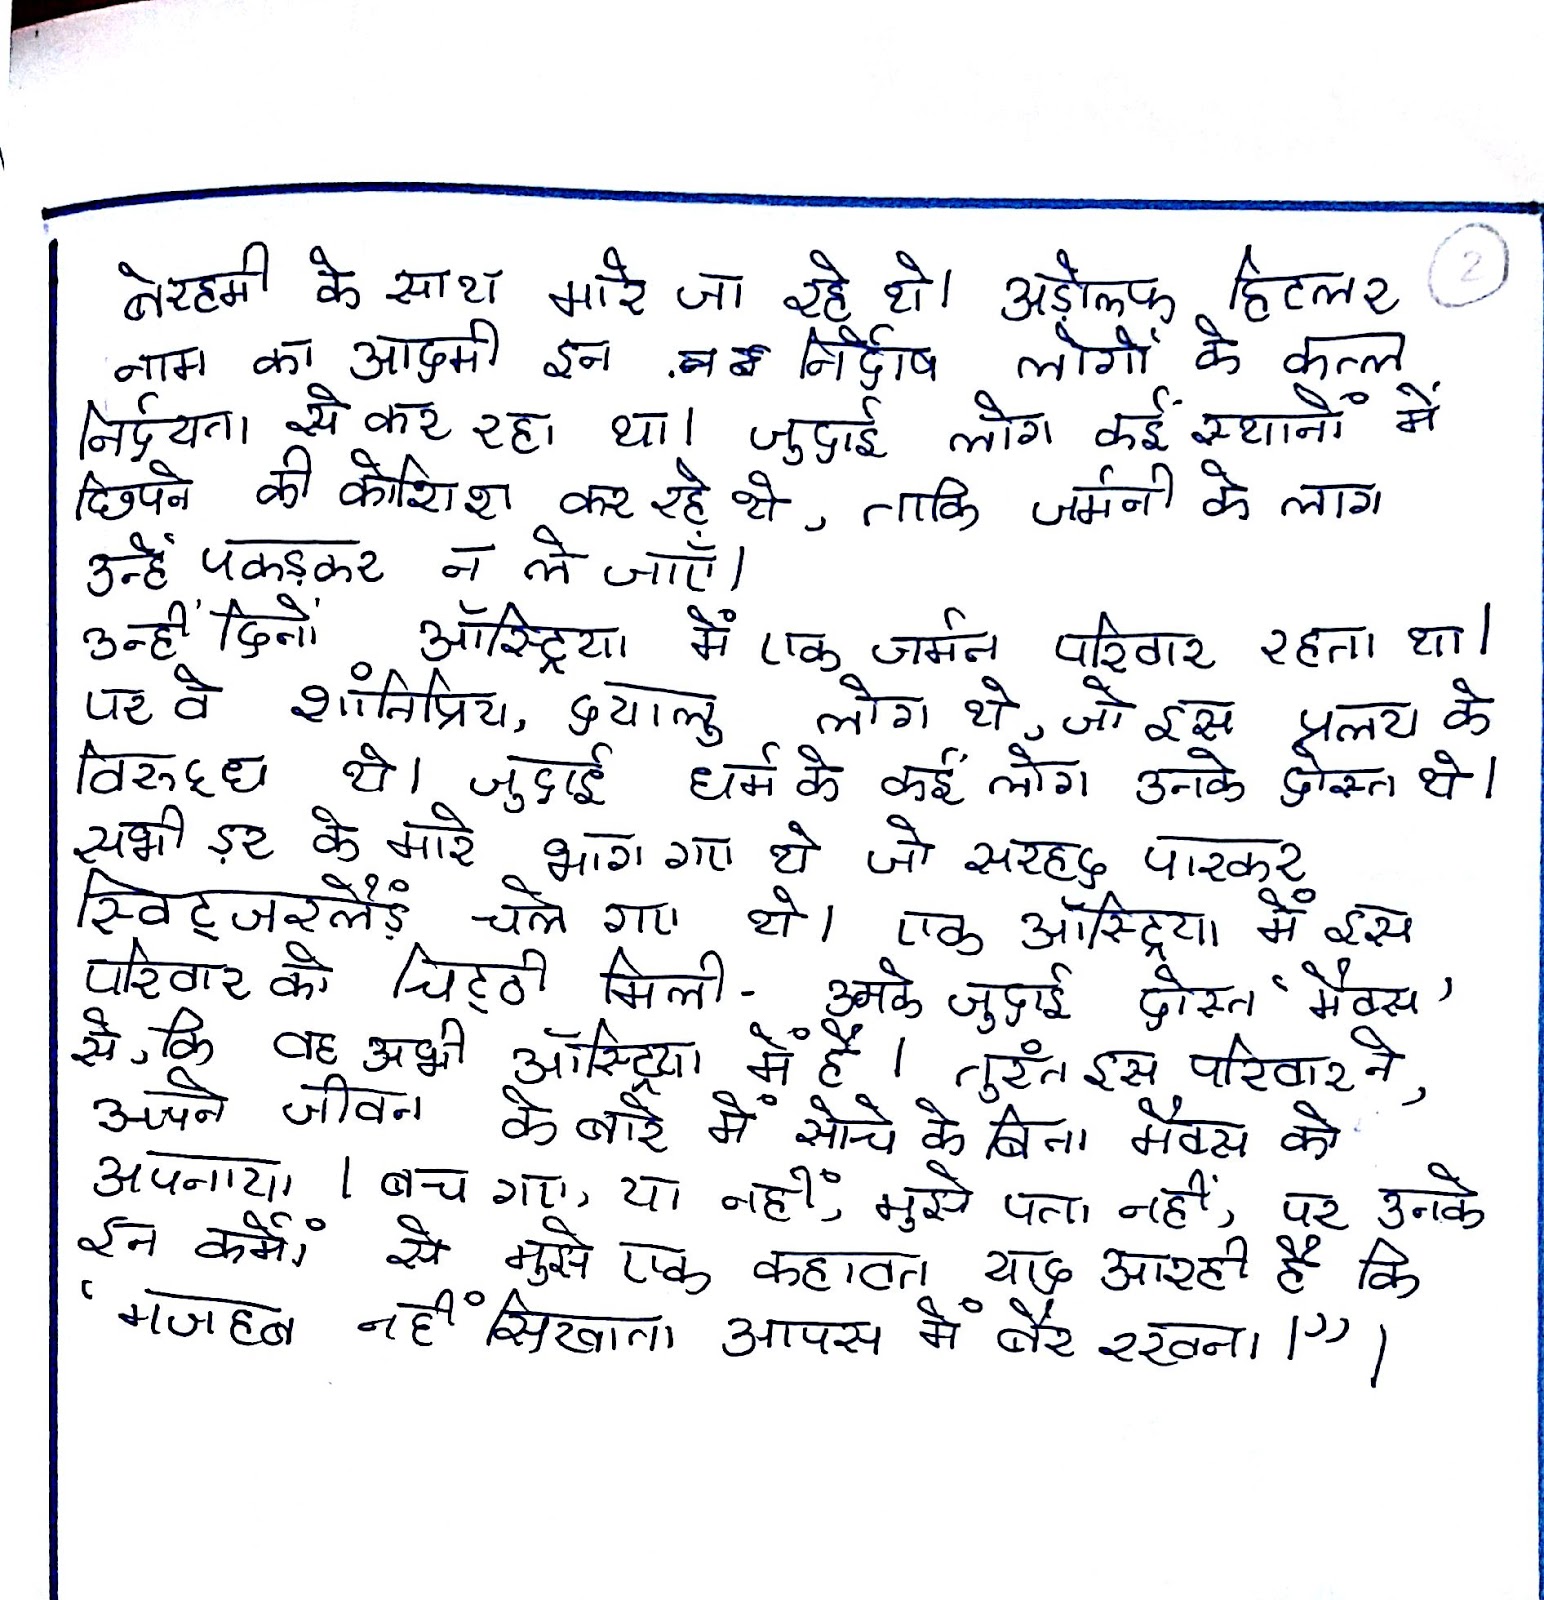 2
बेरहमी के साथ मारे जा रहे थे। अड़ोल्फ़ हिटलर
नाम का आदमी इन निर्दोष लोगों के कत्ल
निर्दयता से कर रहा था। जुदाई लोग कईं स्थानों में
छिपने की कोशिश कर रहे थे, ताकि जर्मनी के लाग
उन्हें पकड़कर न ले जाएँ।
उन्हीं दिनों ऑस्ट्रिया में एक जर्मन परिवार रहता था।
पर वे शांतिप्रिय, दयालु लोग थे, जो इस प्रलय के
विरुद्ध थे। जुदाई धर्म के कईं लोग उनके दोस्त थे।
सभी ड़र के मारे भाग गए थे जो सरहद पारकर
स्विट्जरलैंड़ चले गए थे। एक ऑस्ट्रिया में इस
परिवार को चिट्ठी मिली - उनके जुदाई दोस्त 'मैक्स'
से, कि वह अभी ऑस्ट्रिया में है। तुरंत इस परिवार ने,
अपने जीवन के बारे में सोचे के बिना मैक्स को
अपनाया। बच गए, या नहीं, मुझे पता नहीं, पर उनके
ईन कर्मों से मुझे एक कहावत याद आरही है कि
'मजहब नहीं सिखाता आपस में बैर रखना।”।